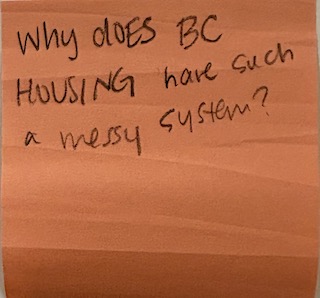 Why dOES BC
HOUSING have such
a messy system?